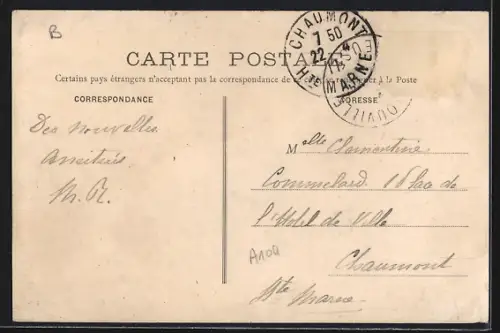 B
CHAUMONT
7 50
22
Hte MARNE
OUVILLE
CARTE POSTALE
Certains pays étrangers n'acceptant pas la correspondance de ce côté, se renseigner à la Poste
CORRESPONDANCE
ADRESSE
Des nouvelles
Amitiés
M. R.
Melle Clémentine
Commelard 16 place de
l'Hotel de Ville
Chaumont
Hte Marne
A104